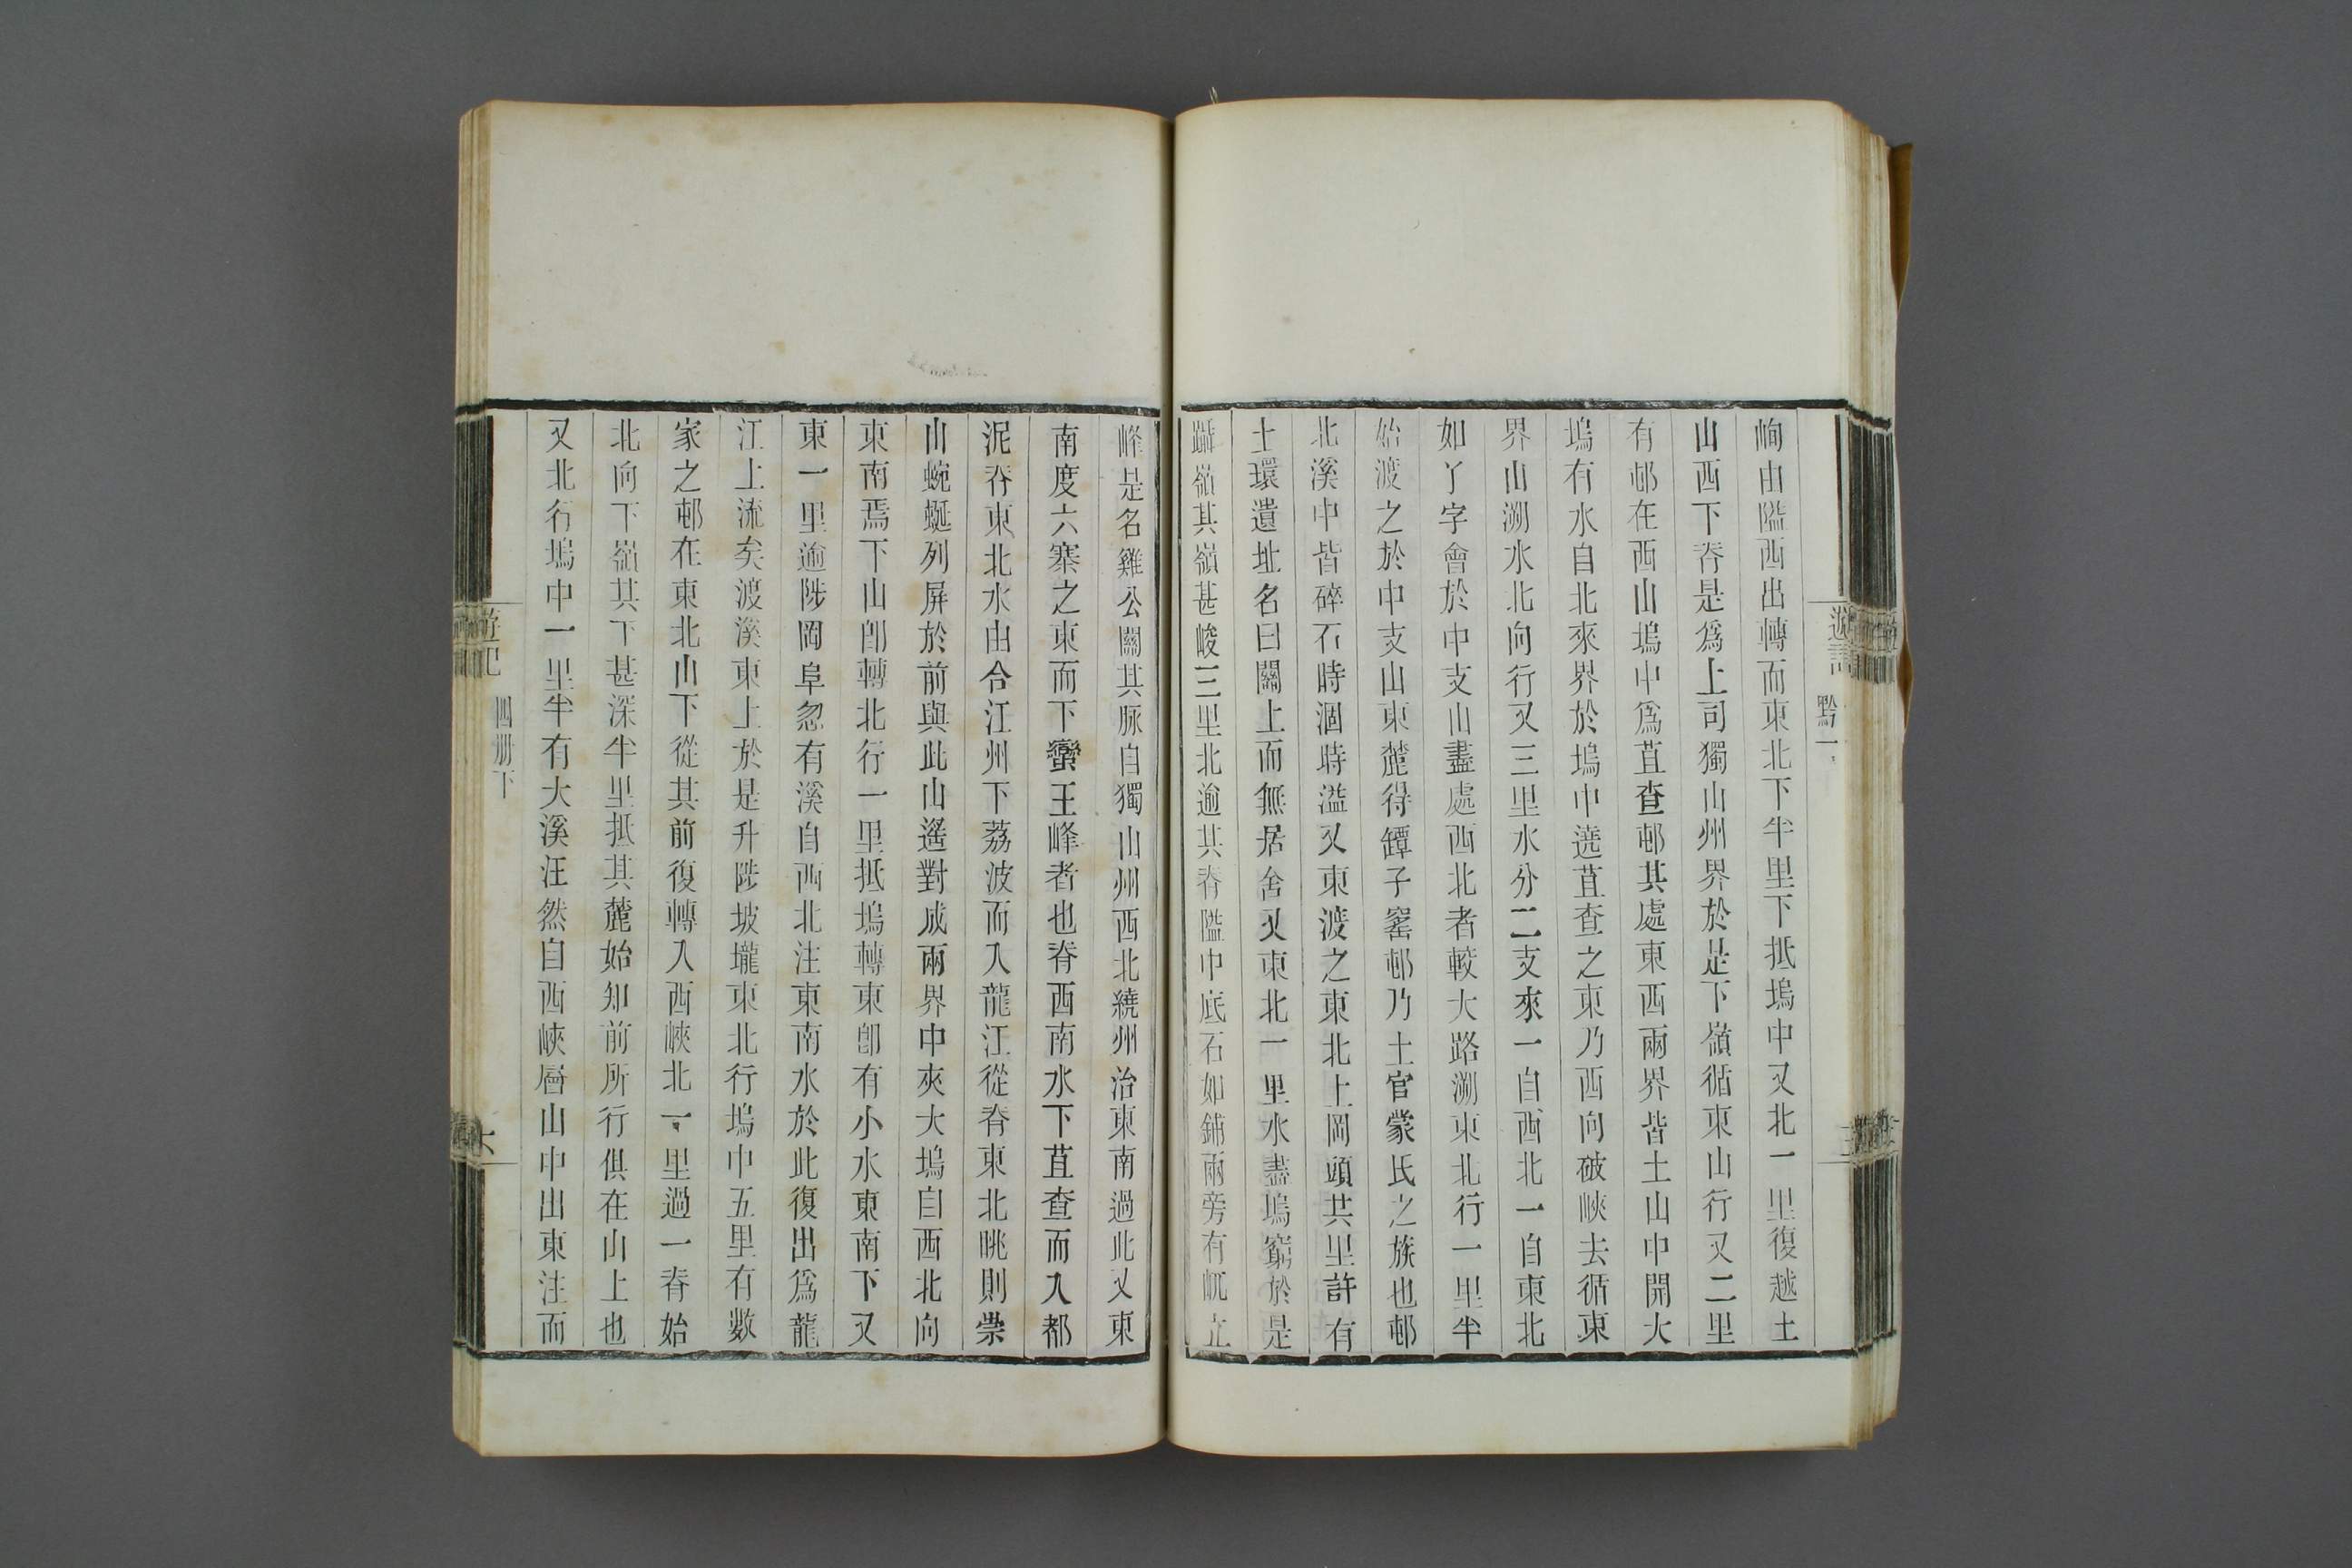 遊記 黔一
峋由隘西出轉而東北下半里下抵塢中又北一里復越土
山西下脊是爲上司獨山州界於是下嶺循東山行又二里
有邨在西山塢中爲苴查邨其處東西兩界皆土山中開大
塢有水自北來界於塢中遶苴查之東乃西向破峽去循東
界山溯水北向行又三里水分二支來一自西北一自東北
如丫字會於中支山盡處西北者較大路溯東北行一里半
始渡之於中支山東麓得罈子窰邨乃土官蒙氏之族也邨
北溪中皆碎石時涸時溢又東渡之東北上岡頭共里許有
土環遺址名曰關上而無居舍又東北一里水盡塢窮於是
躡嶺其嶺甚峻三里北逾其脊隘中底石如鋪兩旁有屼立
峰是名雞公關其脉自獨山州西北繞州治東南過此又東
南度六寨之東而下蠻王峰者也脊西南水下苴查而入都
泥脊東北水由合江州下荔波而入龍江從脊東北眺則崇
山蜿蜒列屏於前與此山遙對成兩界中夾大塢自西北向
東南焉下山卽轉北行一里抵塢轉東卽有小水東南下又
東一里逾陟岡阜忽有溪自西北注東南水於此復出爲龍
江上流矣渡溪東上於是升陟坡壠東北行塢中五里有數
家之邨在東北山下從其前復轉入西峽北一里過一脊始
北向下嶺其下甚深半里抵其麓始知前所行俱在山上也
又北行塢中一里半有大溪汪然自西峽層山中出東注而
遊記 四册下 六